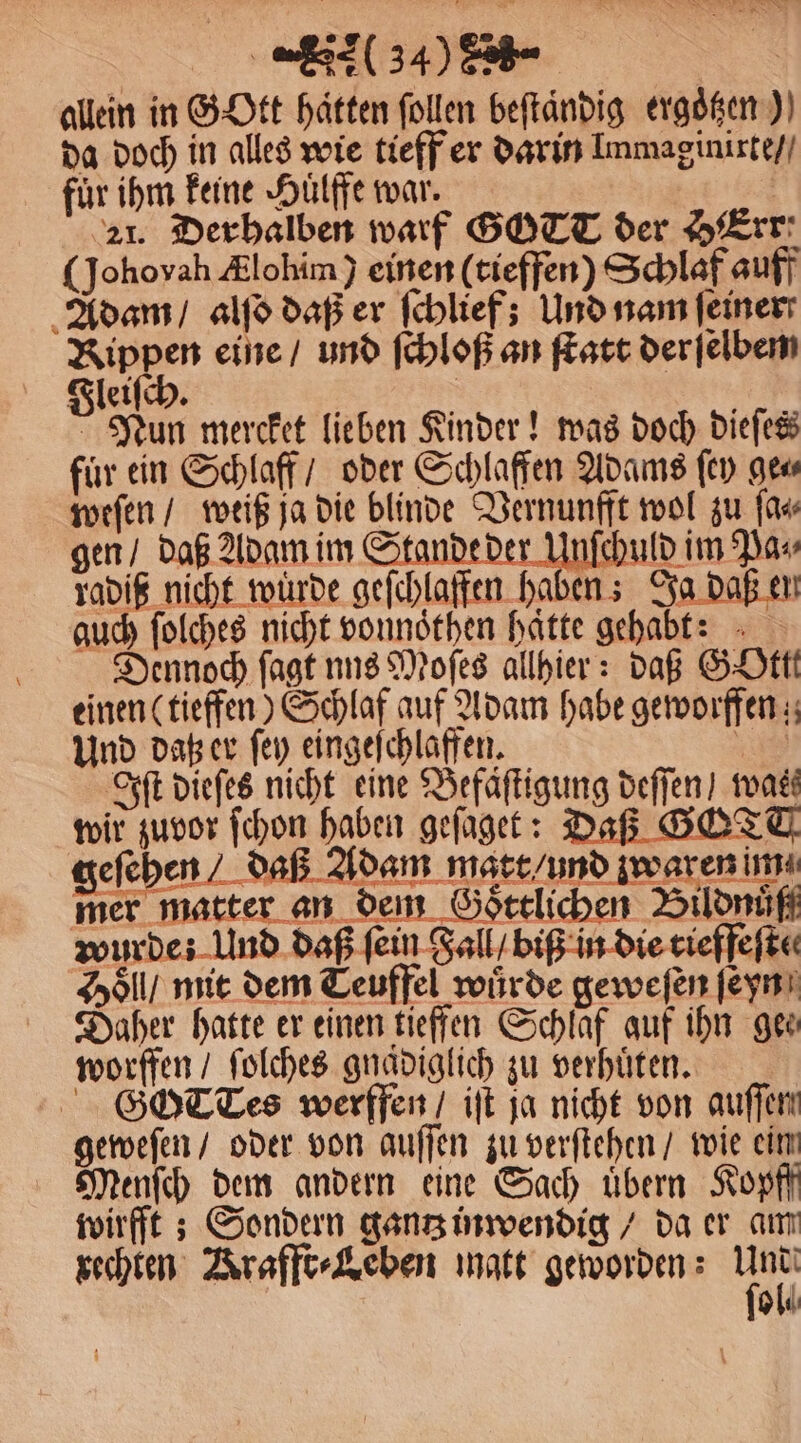 (34)
allein in GOtt hätten ſollen beſtändig ergötzen )
da doch in alles wie tieff er darin Immaginirte/
für ihm keine Hülffe war.
21. Derhalben warf GOTT der HErr
(Johovah Ælohim) einen (tieffen) Schlaf auff
Adam / alſo daß er ſchlief; Und nam ſeiner
Rippen eine / und ſchloß an ſtatt derſelbem
Fleiſch.
Nun mercket lieben Kinder! was doch dieſes
für ein Schlaff / oder Schlaffen Adams ſey ge-
weſen / weiß ja die blinde Vernunfft wol zu ſa-
gen / daß Adam im Stande der Unſchuld im Pa-
radiß nicht würde geſchlaffen haben; Ja daß er
auch ſolches nicht vonnöthen hätte gehabt:
Dennoch ſagt nns Moſes allhier: daß GOtt
einen (tieffen) Schlaf auf Adam habe geworffen;
Und datz er ſey eingeſchlaffen.
Iſt dieſes nicht eine Befäſtigung deſſen / was
wir zuvor ſchon haben geſaget: Daß GOTT
geſehen / daß Adam matt/und zwaren im-
mer matter an dem Göttlichen Bildnüß
wurde; Und daß ſein Fall / biß in die tieffeſte
Höll / mit dem Teuffel würde geweſen ſeyn
Daher hatte er einen tieffen Schlaf auf ihn ge-
worffen / ſolches gnädiglich zu verhüten.
GOTTes werffen / iſt ja nicht von auſſen
geweſen / oder von auſſen zu verſtehen / wie ein
Menſch dem andern eine Sach übern Kopff
wirfft; Sondern gantz inwendig / da er am
rechten Krafft-Leben matt geworden: Und
ſol-